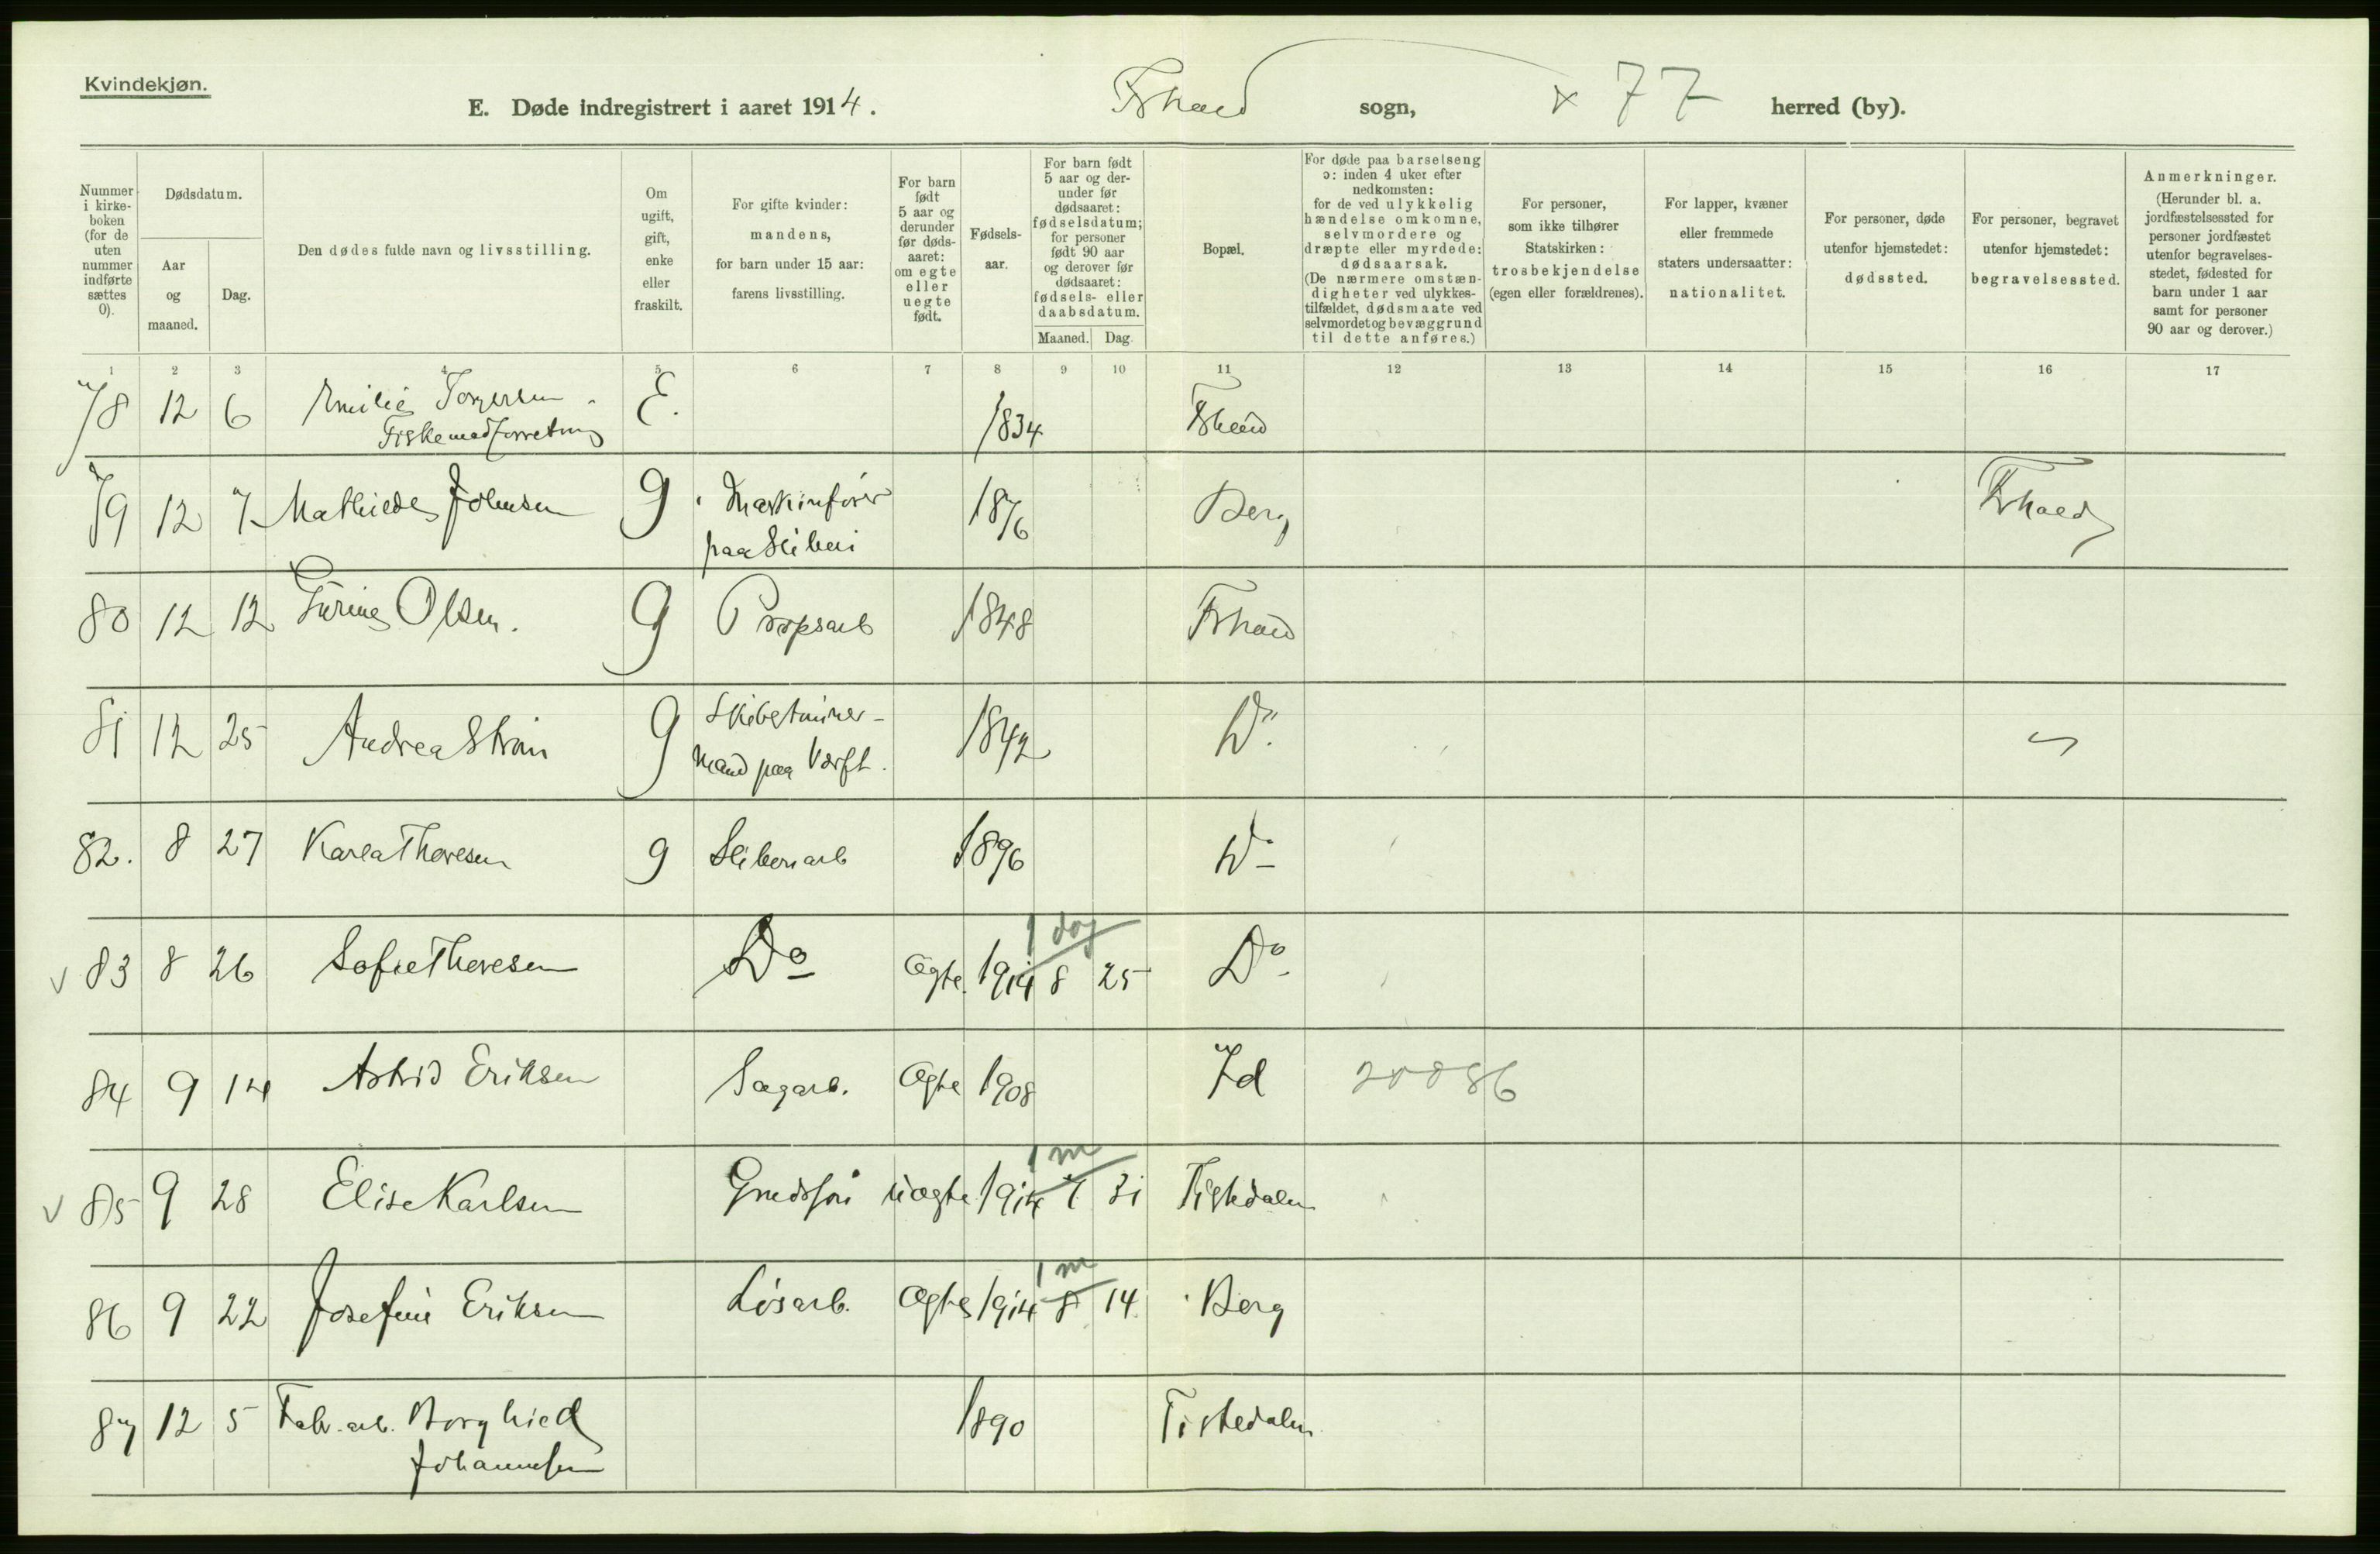 Kvindekjøn.
E. Døde indregistrert i aaret 1914. Frhald sogn, x 77 herred (by).
Nummer i kirkeboken (for de uten nummer indførte sættes 0).
Dødsdatum.
Aar og maaned.
Dag.
Den dødes fulde navn og livsstilling.
Om ugift, gift, enke eller fraskilt.
For gifte kvinder: mandens, for barn under 15 aar: farens livsstilling.
For barn født 5 aar og derunder før dødsaaret: om egte eller uegte født.
Fødselsaar.
For barn født 5 aar og derunder før dødsaaret: fødselsdatum; for personer født 90 aar og derover før dødsaaret: fødsels- eller daabsdatum.
Maaned. Dag.
Bopæl.
For døde paa barselseng ɔ: inden 4 uker efter nedkomsten: for de ved ulykkelig hændelse omkomne, selvmordere og dræpte eller myrdede: dødsaarsak. (De nærmere omstændigheter ved ulykkestilfældet, dødsmaate ved selvmordet og bevæggrund til dette anføres.)
For personer, som ikke tilhører Statskirken: trosbekjendelse (egen eller forældrenes).
For lapper, kvæner eller fremmede staters undersaatter: nationalitet.
For personer, døde utenfor hjemstedet: dødssted.
For personer, begravet utenfor hjemstedet: begravelsessted.
Anmerkninger. (Herunder bl. a. jordfæstelsessted for personer jordfæstet utenfor begravelsesstedet, fødested for barn under 1 aar samt for personer 90 aar og derover.)
1 2 3 4 5 6 7 8 9 10 11 12 13 14 15 16 17
78 12 6 Emilie Torgersen E. 1834 Frhald
Fiskemadforretning
79 12 7 Mathilde Johnsen g Maskinfører 1876 Berg Frhald
paa Sliberi
80 12 12 Thrine Olsen. g Propsarb 1848 Frhald
81 12 25 Andrea Strøm g Skibstømmer- 1842 Do.
mand paa Værft.
82. 8 27 Karla Thoresen g Sliberiarb 1896 Do
1 dag
v 83 8 26 Sofie Thoresen Do Ægte. 1914 8 25 Do
84 9 14 Astrid Eriksen Sagarb. Ægte 1908 Id 20086
1 m
v 85 9 28 Elise Karlsen uægte 1914 7 31 Tistedalen
1 m
86 9 22 Josefine Eriksen Løsarb. Ægte 1914 8 14 Berg
87 12 5 Fabr. arb. Borghild 1890 Tistedalen
Johannesen